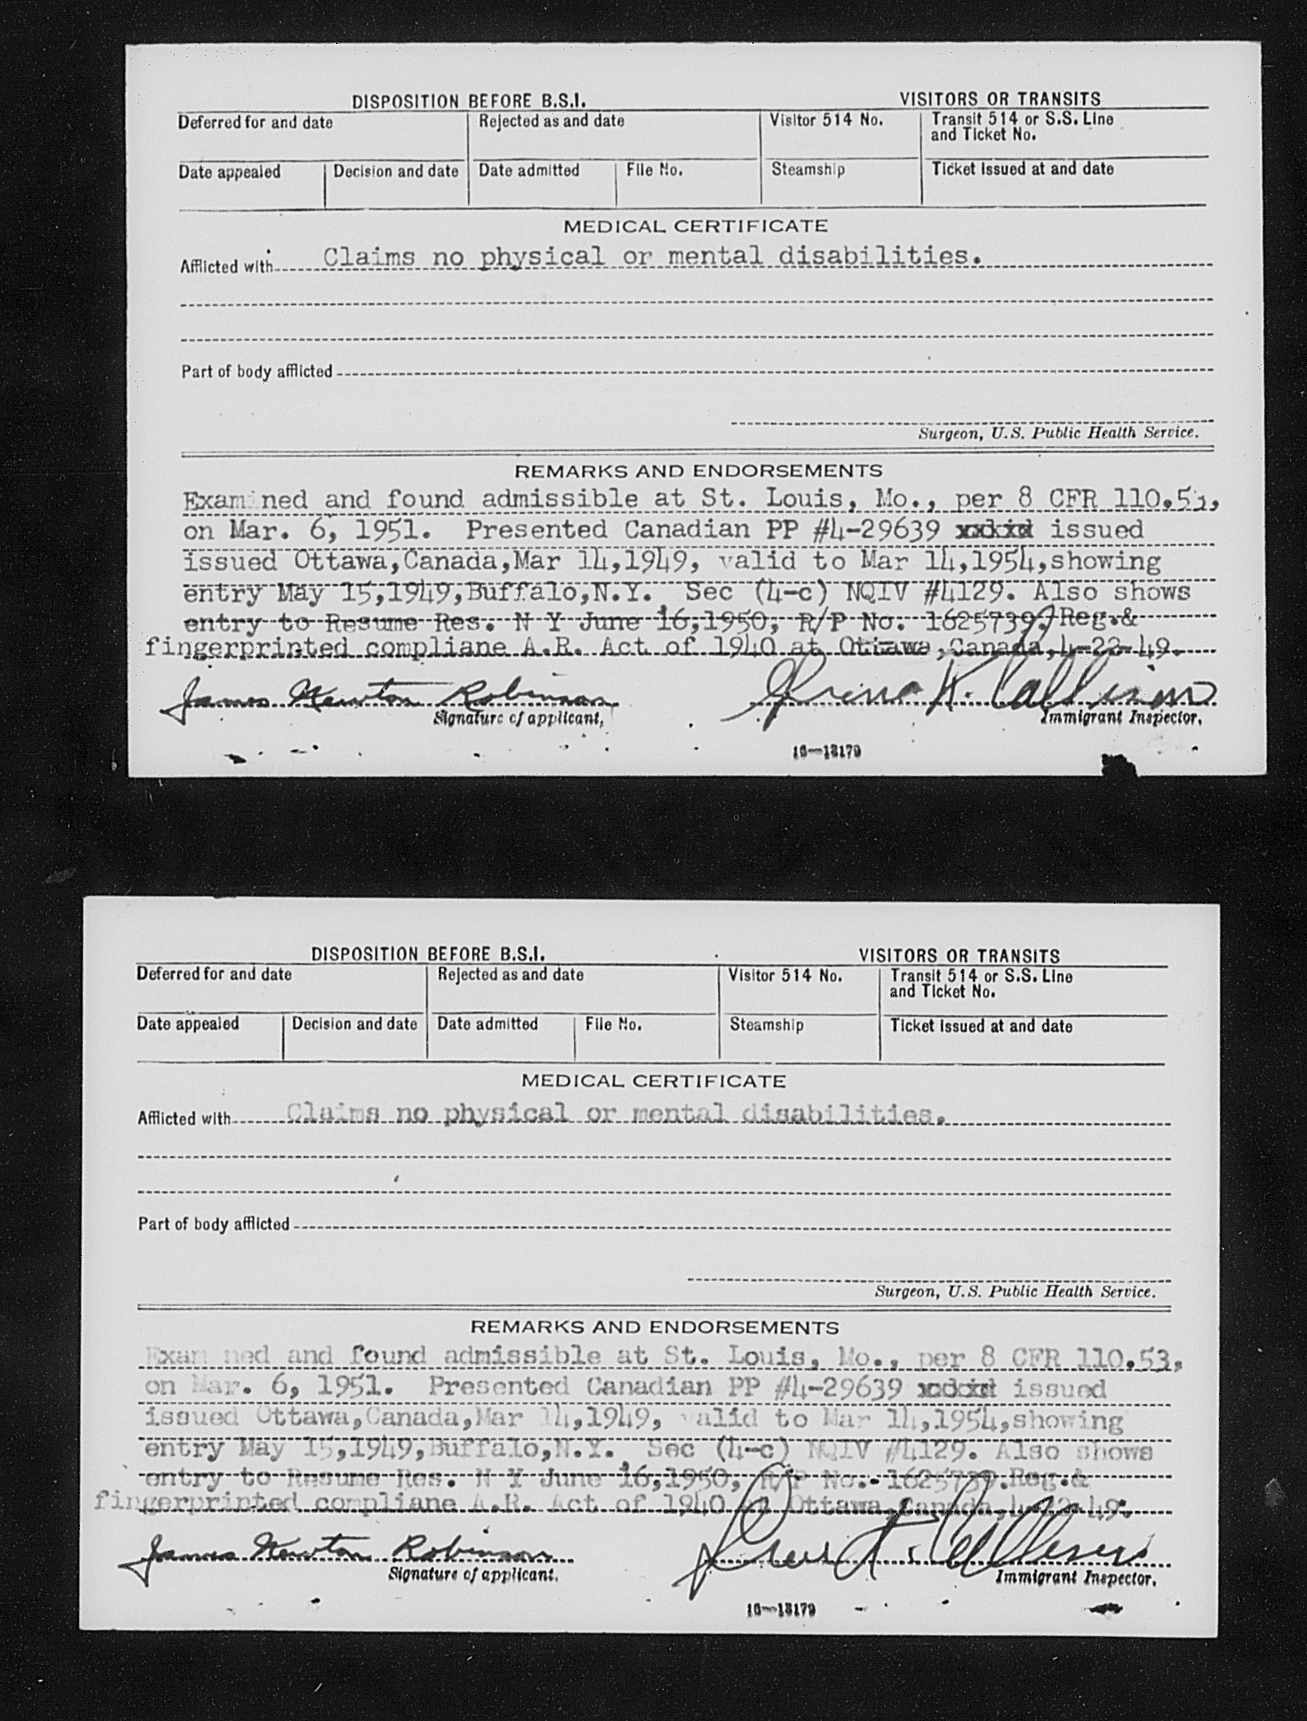 DISPOSITION BEFORE B.S.I.
VISITORS OR TRANSITS
Deferred for and date
Rejected as and date
Visitor 514 No.
Transit 514 or S.S. Line
and Ticket No.
Date appealed
Decision and date
Date admitted
File No.
Steamship
Ticket issued at and date
MEDICAL CERTIFICATE
Afflicted with Claims no physical or mental disabilities.
Part of body afflicted
Surgeon, U.S. Public Health Service.
REMARKS AND ENDORSEMENTS
Examined and found admissible at St. Louis, Mo., per 8 CFR 110.53,
on Mar. 6, 1951. Presented Canadian PP #4-29639 issued
issued Ottawa,Canada,Mar 14,1949, valid to Mar 14,1954,showing
entry May 15,1949,Buffalo,N.Y. Sec (4-c) NQIV #4129. Also shows
entry to Resume Res. N Y June 16,1950, R/P No. 1625739. Reg.&
fingerprinted compliane A.R. Act of 1940 at Ottawa,Canada,4-22-49.
James Newton Robinson
Signature of applicant.
Immigrant Inspector.
16—13179
DISPOSITION BEFORE B.S.I.
VISITORS OR TRANSITS
Deferred for and date
Rejected as and date
Visitor 514 No.
Transit 514 or S.S. Line
and Ticket No.
Date appealed
Decision and date
Date admitted
File No.
Steamship
Ticket issued at and date
MEDICAL CERTIFICATE
Afflicted with Claims no physical or mental disabilities.
Part of body afflicted
Surgeon, U.S. Public Health Service.
REMARKS AND ENDORSEMENTS
Examined and found admissible at St. Louis, Mo., per 8 CFR 110.53,
on Mar. 6, 1951. Presented Canadian PP #4-29639 issued
issued Ottawa,Canada,Mar 14,1949, valid to Mar 14,1954,showing
entry May 15,1949,Buffalo,N.Y. Sec (4-c) NQIV #4129. Also shows
entry to Resume Res. N Y June 16,1950, R/P No. 1625739.Reg.&
fingerprinted compliane A.R. Act of 1940 at Ottawa,Canada,4-22-49.
James Newton Robinson
Signature of applicant.
Immigrant Inspector.
16—13179